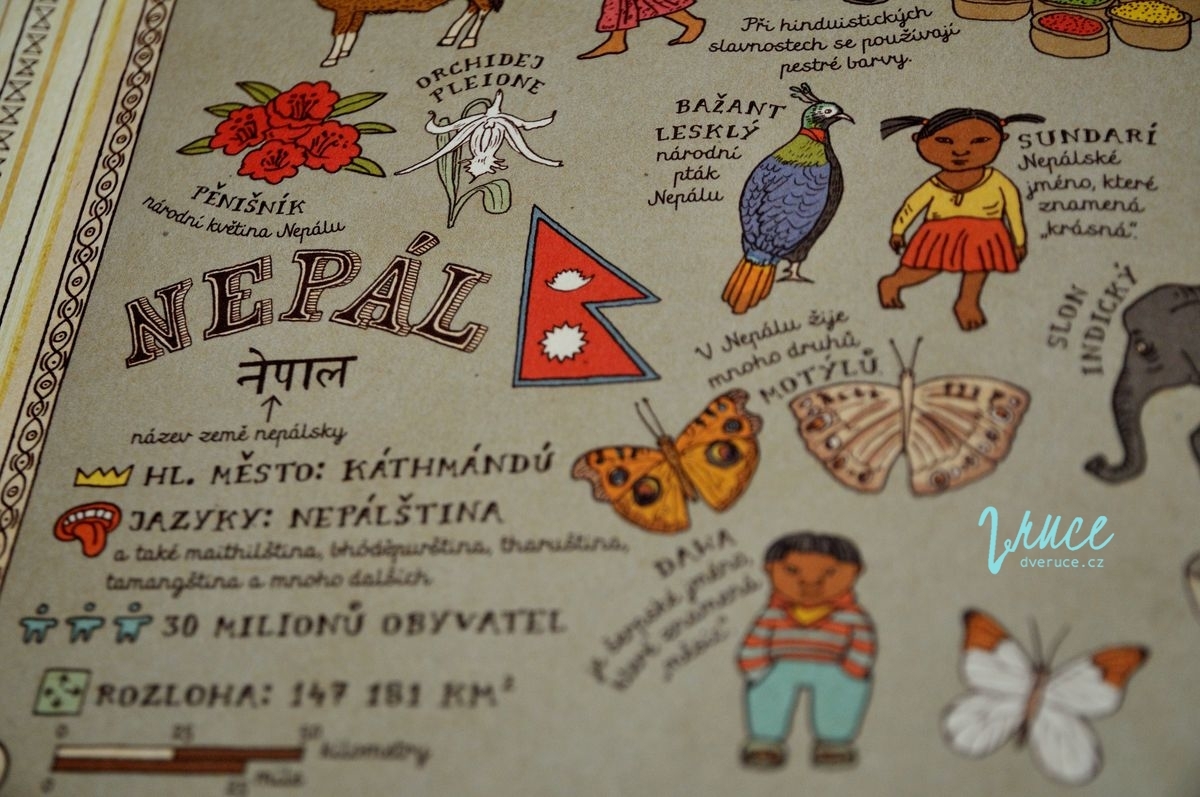 Při hinduistických
slavnostech se používají
pestré barvy.
ORCHIDEJ
PLEIONE
PĚNIŠNÍK
národní květina Nepálu
BAŽANT
LESKLÝ
národní
pták
Nepálu
SUNDARÍ
Nepálské
jméno, které
znamená
„krásná“.
NEPÁL
नेपाल
název země nepálsky
SLON
INDICKÝ
V Nepálu žije
mnoho druhů
MOTÝLŮ
HL. MĚSTO: KÁTHMÁNDÚ
JAZYKY: NEPÁLŠTINA
a také maithilština, bhódžpurština, tharuština,
tamangština a mnoho dalších
30 MILIONŮ OBYVATEL
ROZLOHA: 147 181 KM²
0 25 50
kilometry
0 25
míle
DAWA
je šerpské jméno,
které znamená
„měsíc“
Vruce
dveruce.cz